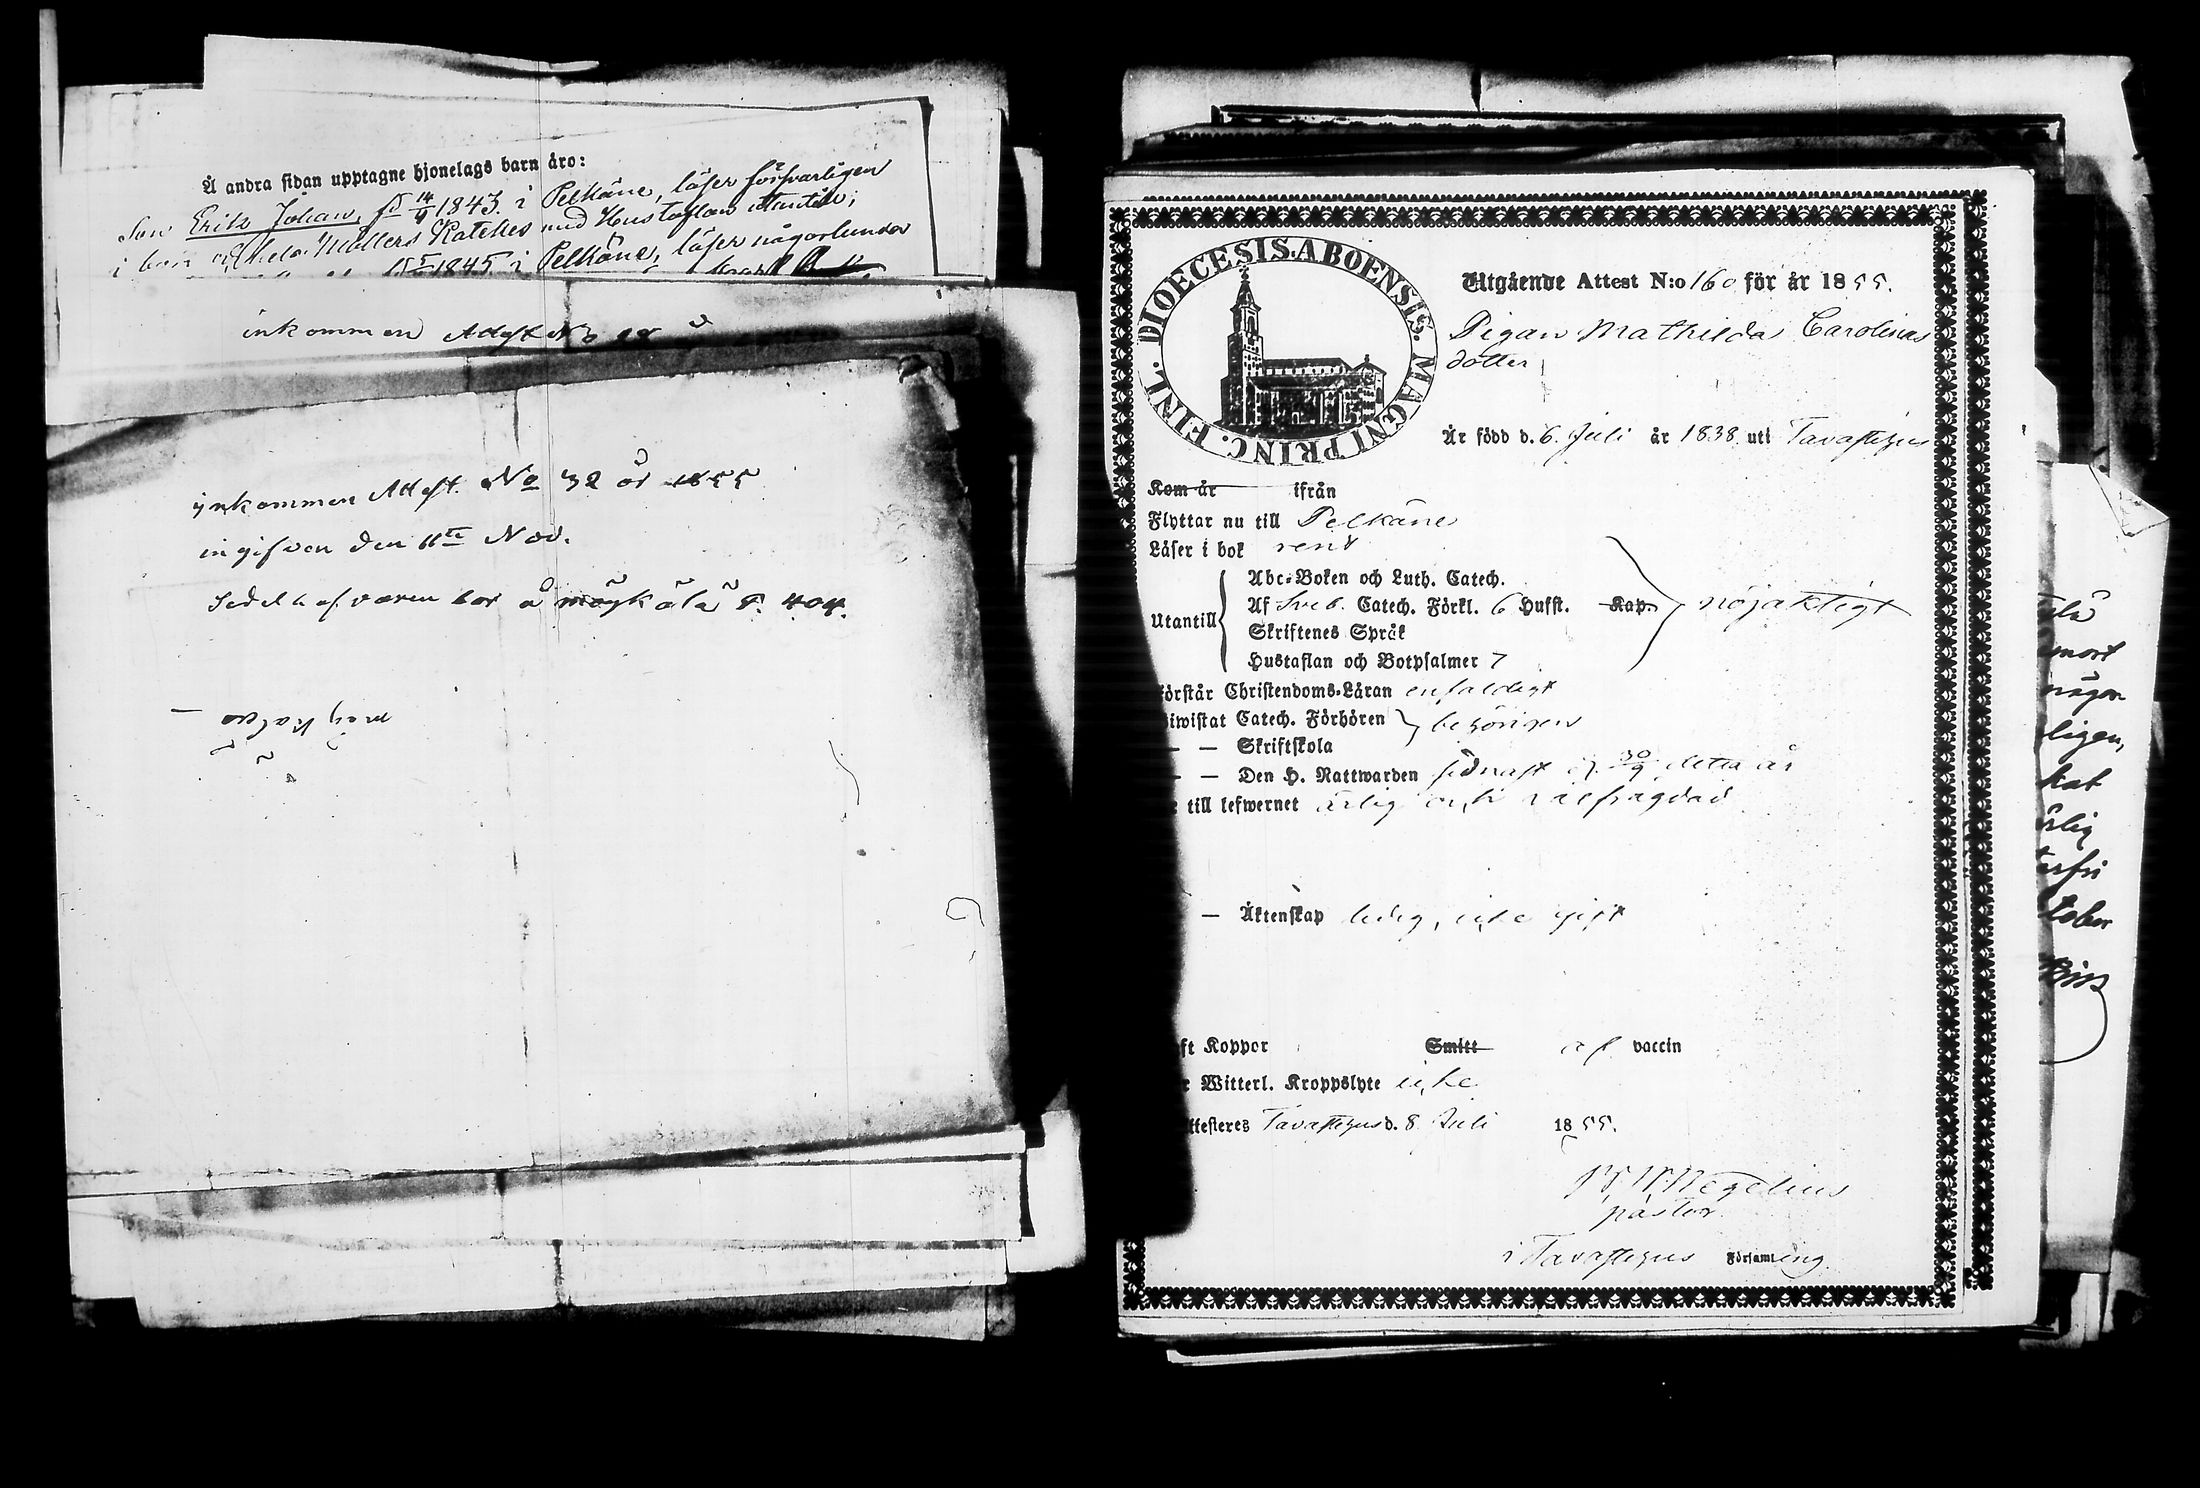 Å andra sidan upptagne hjonelags barn äro:
Son Erik Johan, fd 14/9 1843 i Pelkäne, läser försvarligen
i bok Möllers Katekes med Hustaflan utantill;
1845 i Pelkäne, läser någorlunda
inkommen Attest No
inkommen Attest. No 32 år 1855
ingifven den 11te Nov.
bor å
DIOECESIS. ABOENSIS. MAGNI PRINC. FINL.
Utgående Attest N:o 160 för år 1855.
Pigan Mathilda Carolinas
dotter
Är född d. 6. Juli år 1838. uti Tavastehus
Kom år ifrån
Flyttar nu till Pelkäne
Läser i bok rent
Utantill
Abc-Boken och Luth. Catech.
Af Sveb. Catech. Förkl. 6 Hufst. Kap. nöjaktigt
Skriftenes Språk
Hustaflan och Botpsalmer 7
örstår Christendoms-Läran enfaldigt
iwistat Catech. Förhören behörigen
— — Skriftskola
— — Den H. Nattwarden sednast d. 30/9 detta år
till lefwernet ärlig och välfrägdad
— Äktenskap ledig, icke gift
ft Koppor Smitt af vaccin
r Witterl. Kroppslyte icke
ttesteres Tavastehus d. 8 Juli 1855.
Wegelius
pastor
i Tavastehus Församling
ligen,
kat
ärlig
tober